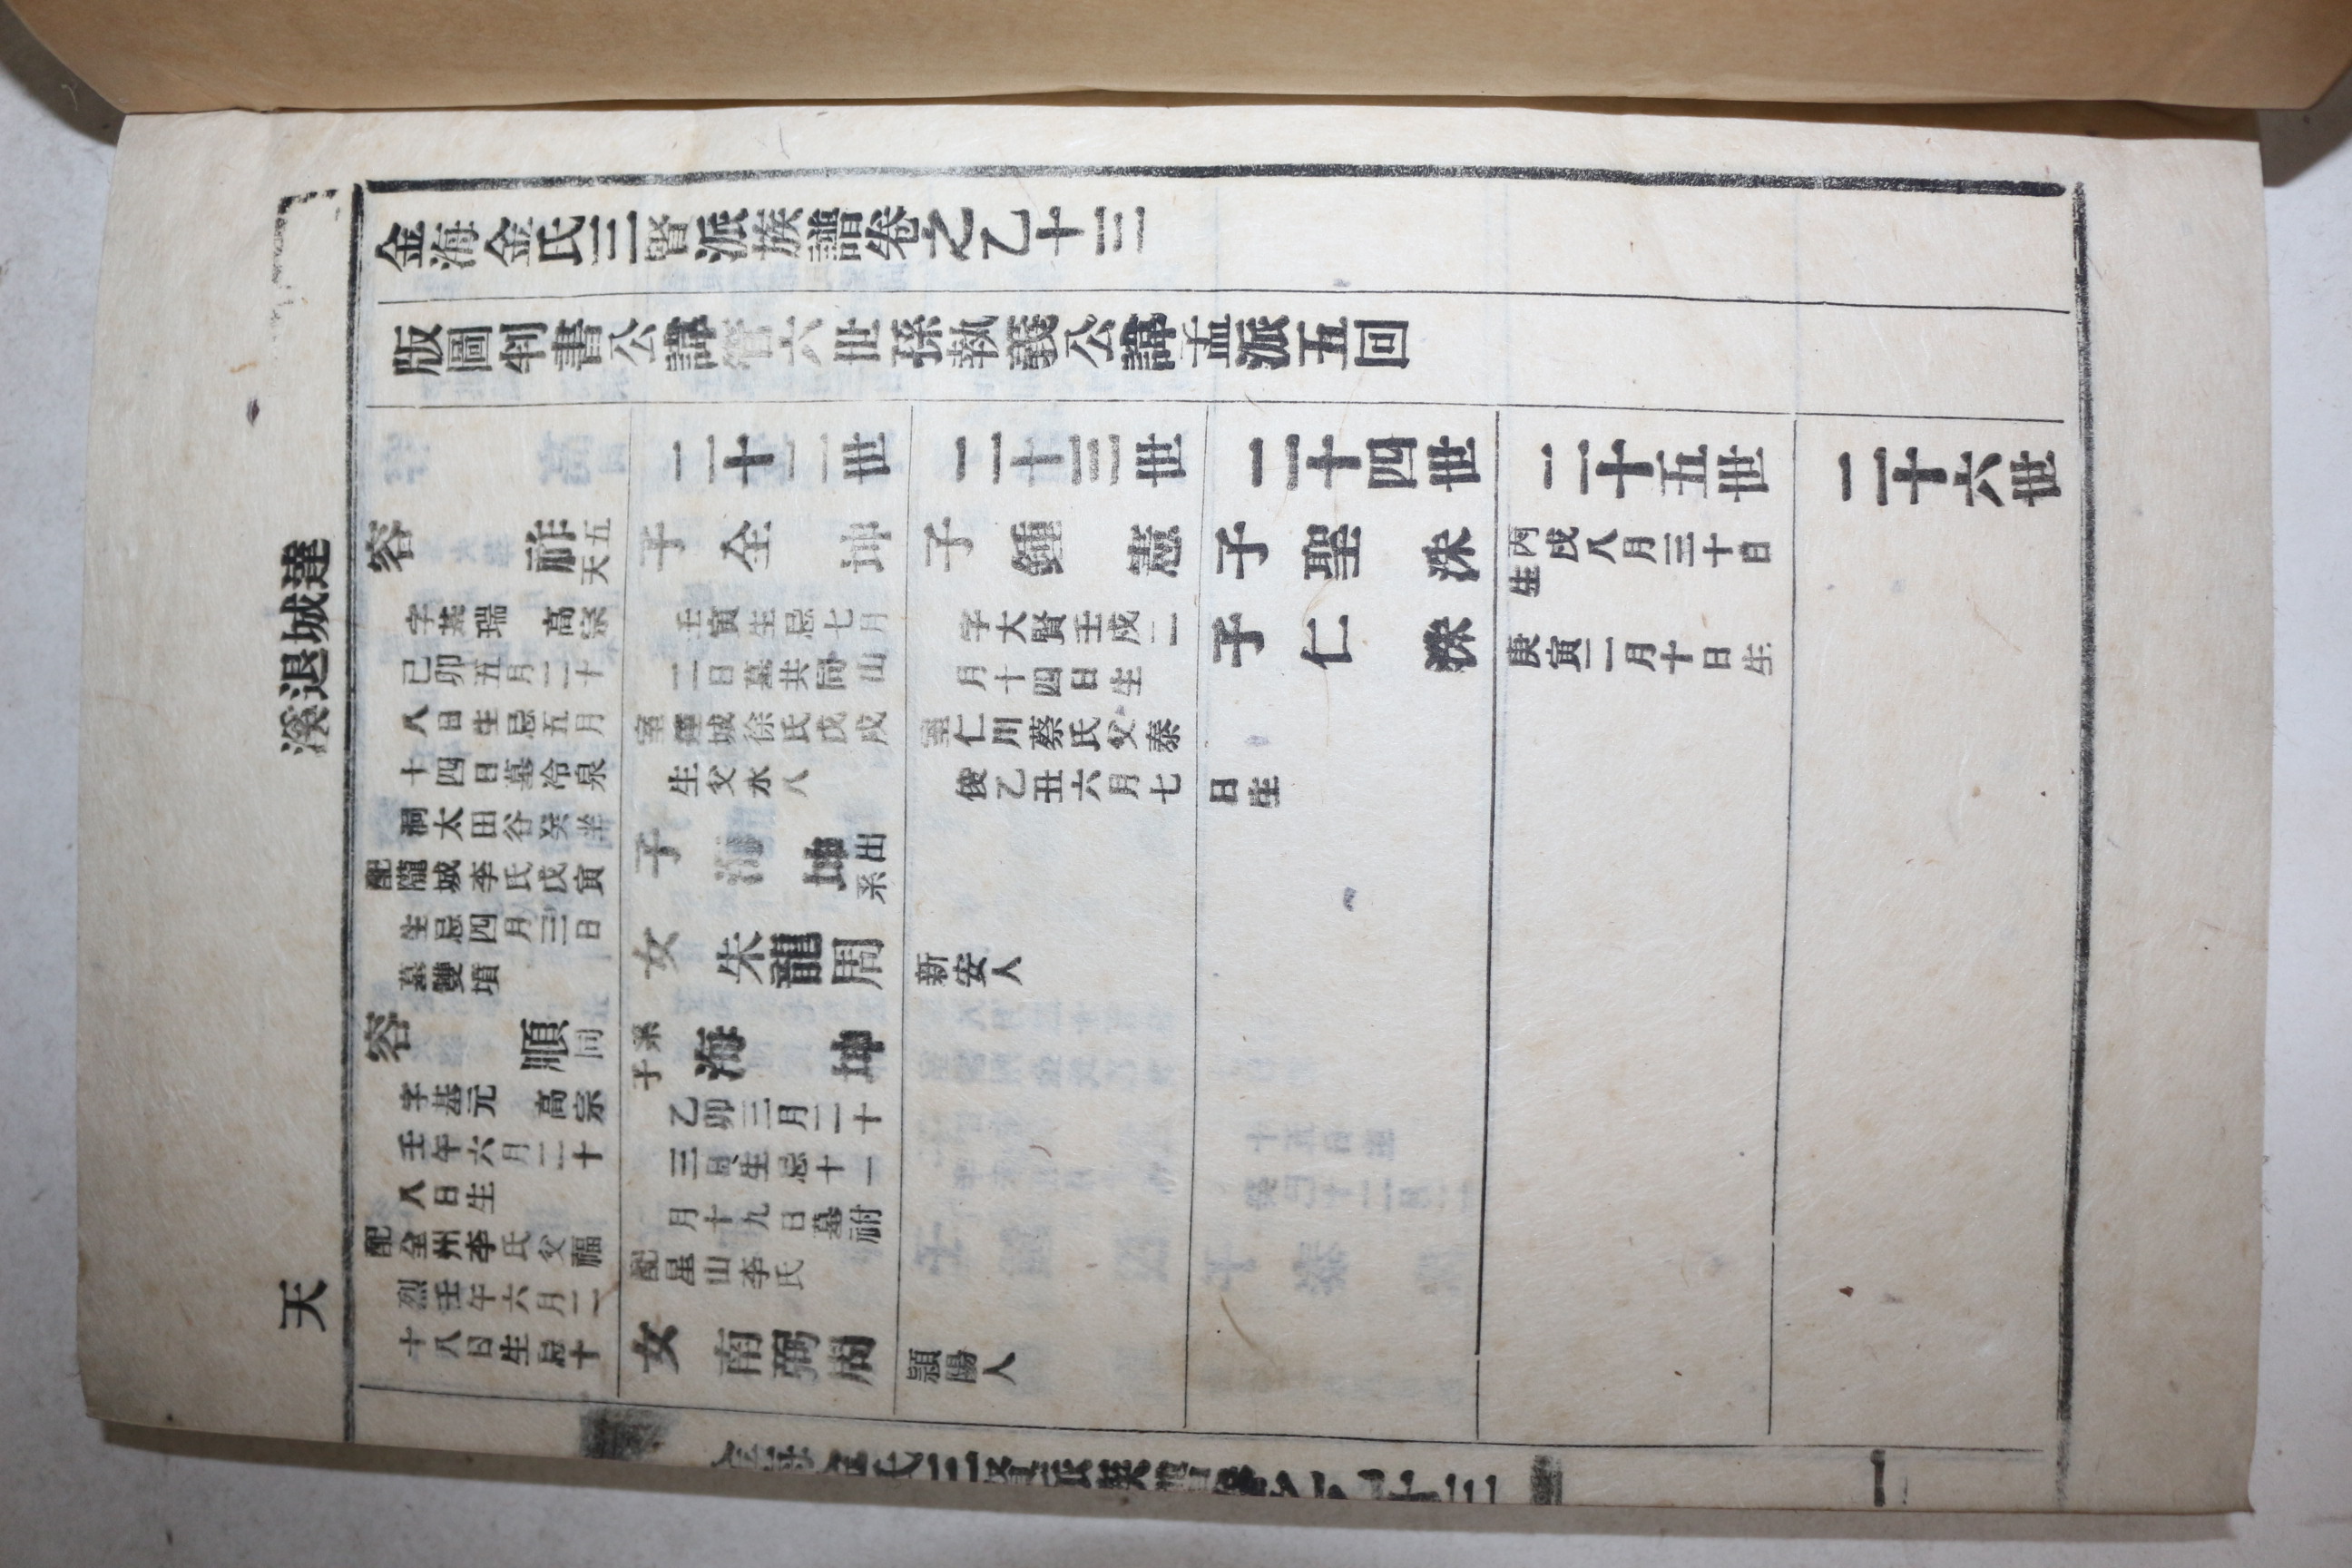 金海金氏三賢派族譜卷之乙十三
版圖判書公諱管六世孫執義公諱孟派五回
二十二世
二十三世
二十四世
二十五世
二十六世
達城退溪
天
容祚 五天
字基瑞 高宗
己卯五月二十
八日生忌五月
十四日墓冷泉
洞太田谷癸坐
配隴城李氏戊寅
生忌四月三日
墓雙墳
容順 同
字基元 高宗
壬午六月二十
八日生
配全州李氏父福
烈壬午六月二
十八日生忌十
子全坤
壬寅生忌七月
二日墓共同山
室達城徐氏戊戌
生父水八
子海坤 出系
女朱龍周
系子海坤
乙卯三月二十
三日生忌十一
月十九日墓祔
配星山李氏
女南弼周
子鍾憲
字大賢壬戌二
月十四日生
室仁川蔡氏父泰
俊乙丑六月七
新安人
潁陽人
子聖洙
子仁洙
日生
丙戌八月三十日
生
庚寅二月十日生
金海金氏三賢派族譜卷之乙十三
一